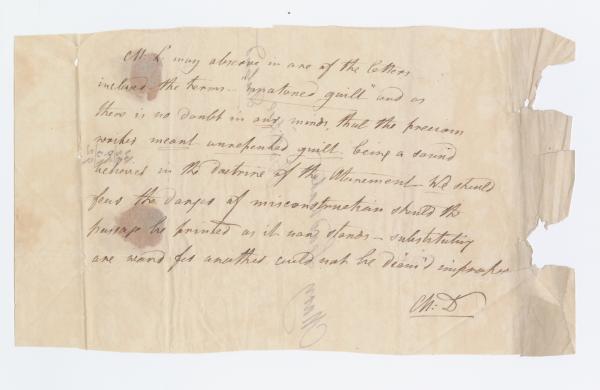 Mr. L. may observe in one of the letters
inclosed the terms - "unatoned guilt" and as
there is no doubt in our minds, that the precious
worker meant unrepented guilt. being a sound
believer in the doctrine of the Atonement - We should
fear the danger of misconstruction should the
passage be printed as it now stands - substituting
one word for another could not be deem'd improper
M. D